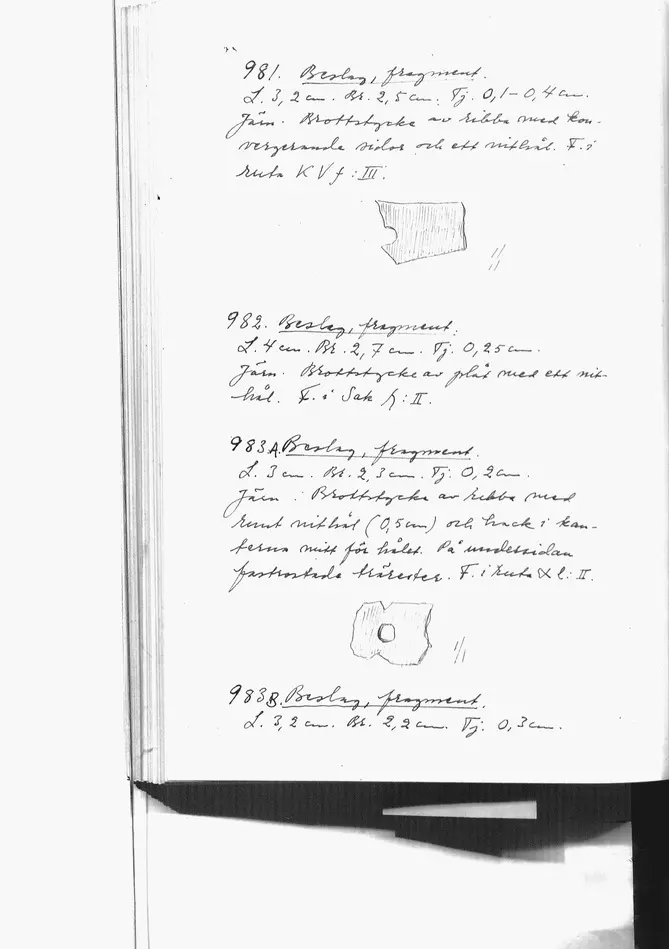 981. Beslag, fragment.
L. 3,2 cm. Br. 2,5 cm. Tj. 0,1-0,4 cm.
Järn. Brottstycke av ribba med kon-
vergerande sidor och ett nithål. F. i
ruta K V f : III.
1/1
982. Beslag, fragment.
L. 4 cm. Br. 2,7 cm. Tj. 0,25 cm.
Järn. Brottstycke av plåt med ett nit-
hål. F. i Sak : II.
983A. Beslag, fragment.
L. 3 cm. Br. 2,3 cm. Tj. 0,2 cm.
Järn. Brottstycke av ribba med
runt nithål (0,5 cm) och hack i kan-
terna mitt för hålet. På undersidan
fastrostade trärester. F. i ruta l : II.
1/1
983B. Beslag, fragment.
L. 3,2 cm. Br. 2,2 cm. Tj. 0,3 cm.